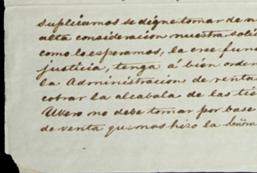 suplicamos se digne tomar de n
alta consideracion nuestra soli
como lo esperamos, la cree fun
justicia, tenga á bien orden
la Administracion de renta
cobrar la alcabala de las tie
Uvero no debe tomar por base
de venta que nos hizo la Señora